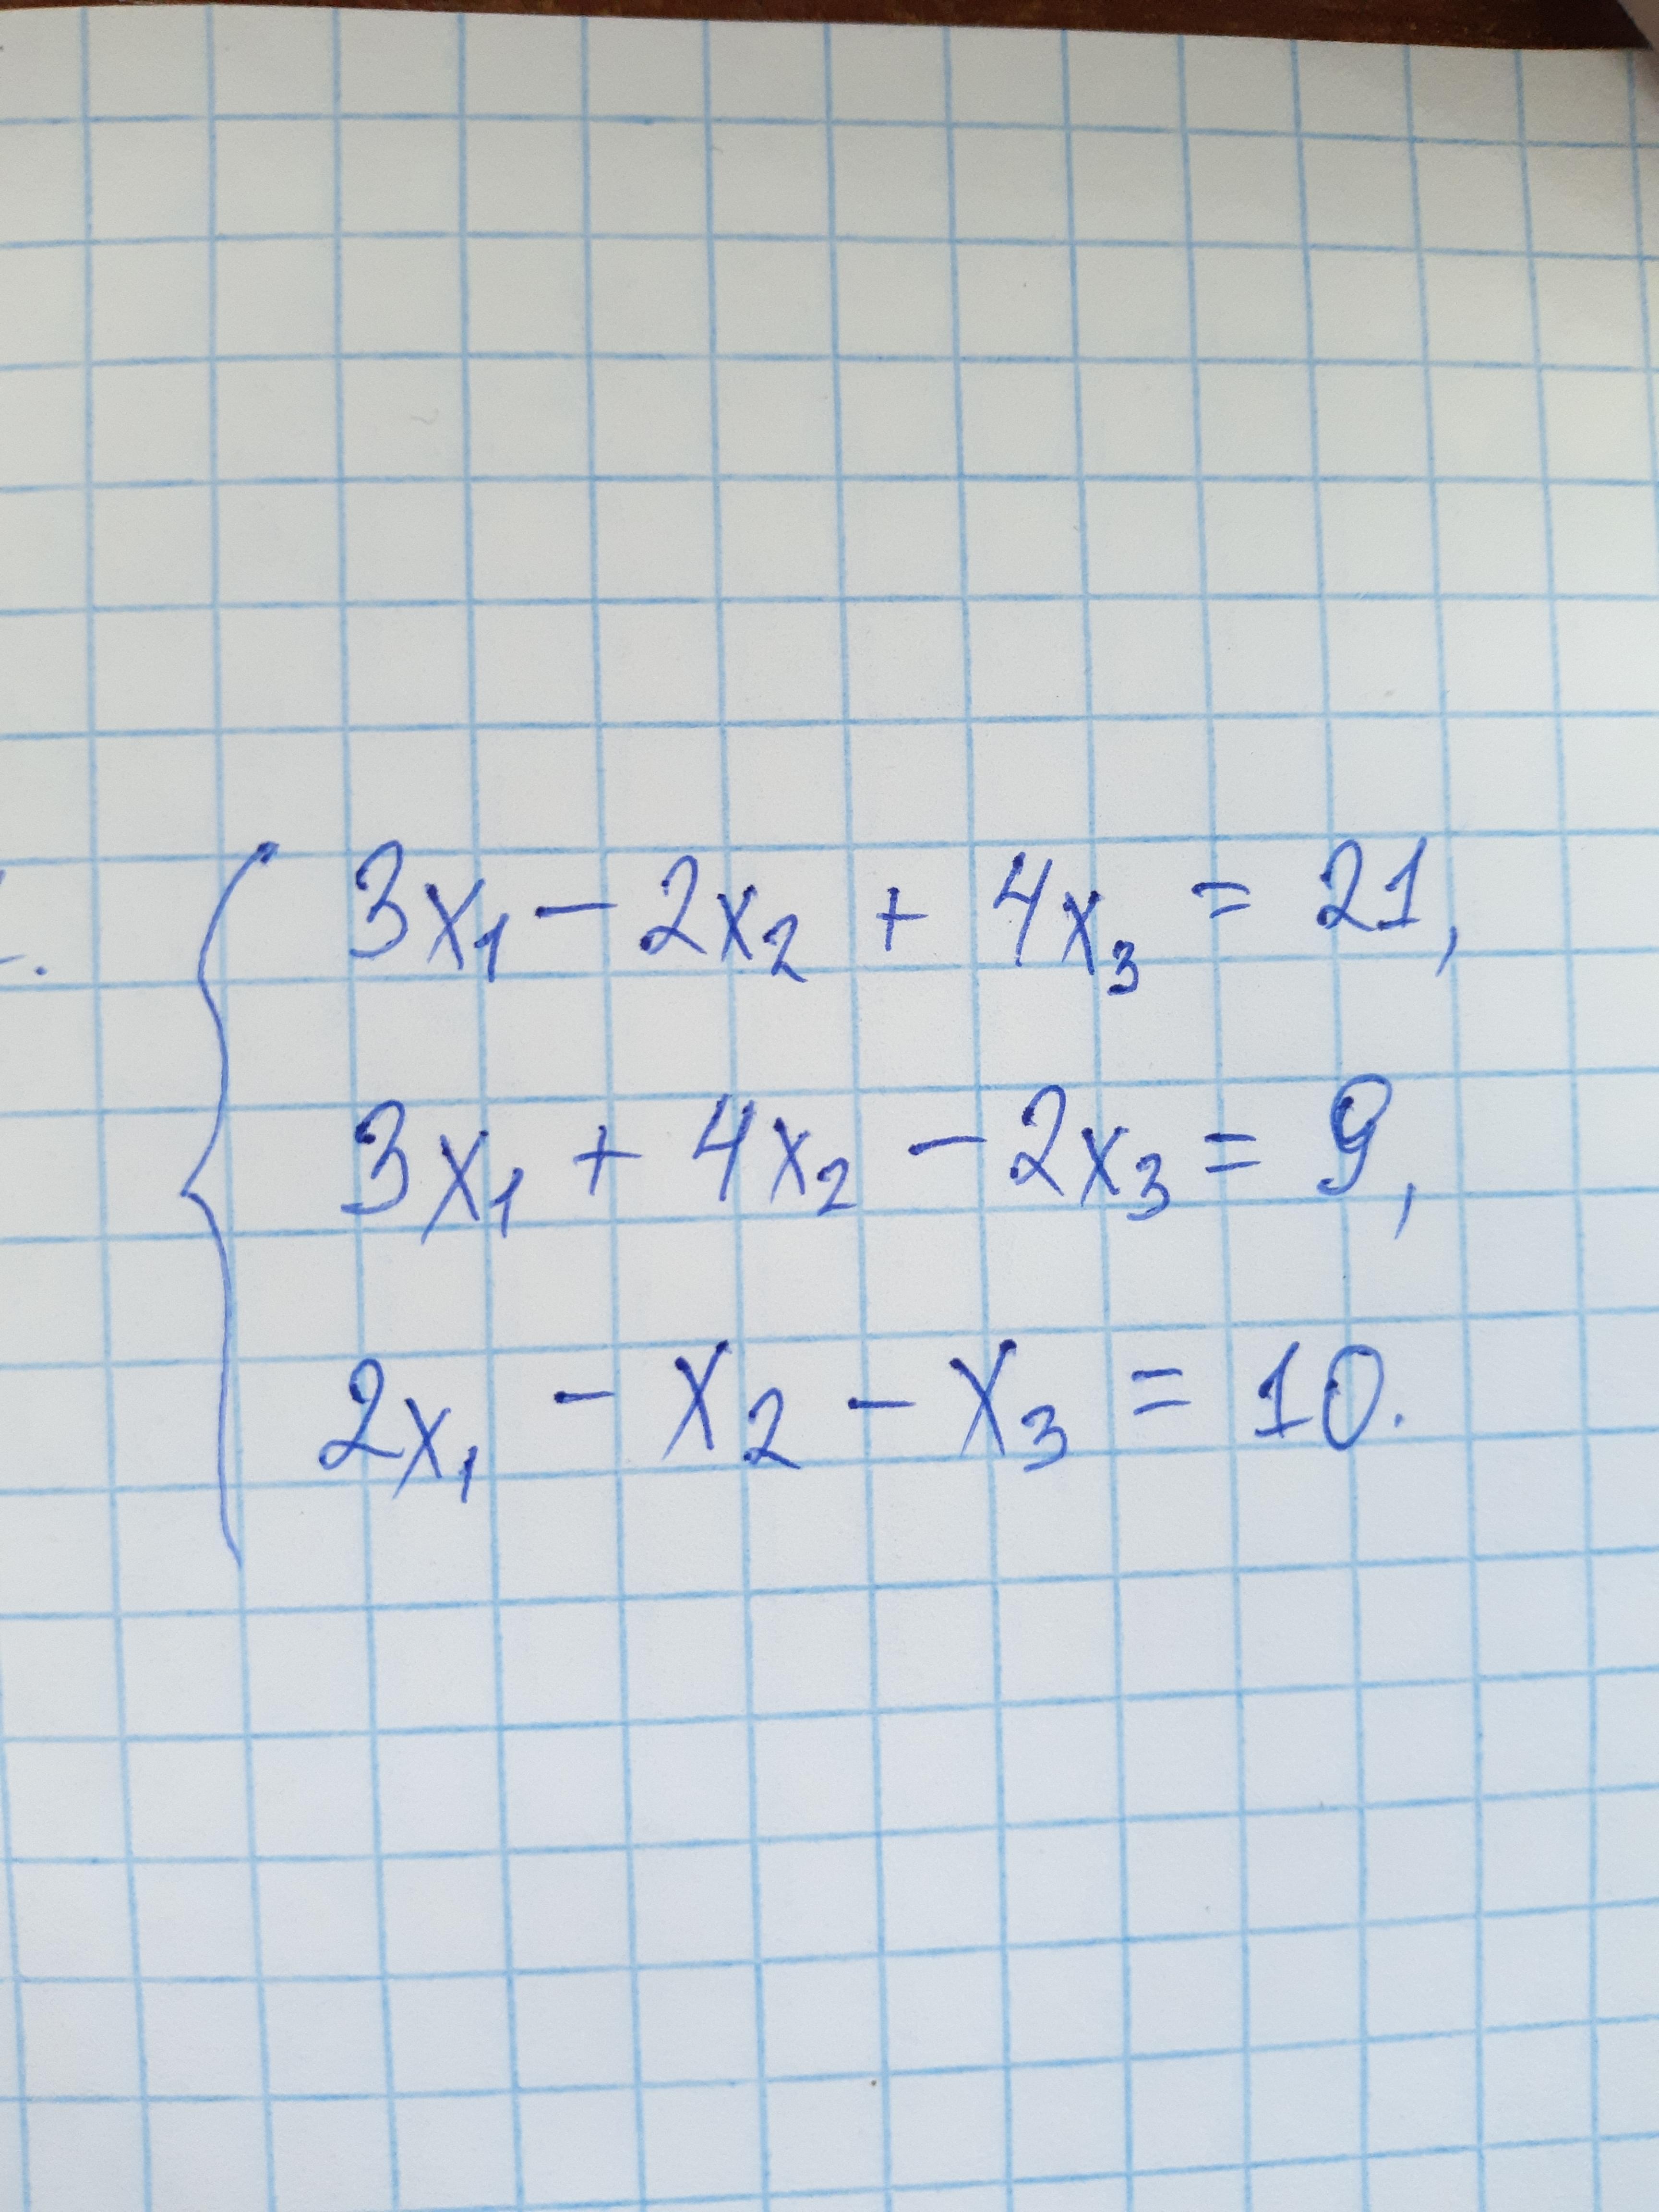 3x₁ - 2x₂ + 4x₃ = 21,
3x₁ + 4x₂ - 2x₃ = 9,
2x₁ - x₂ - x₃ = 10.